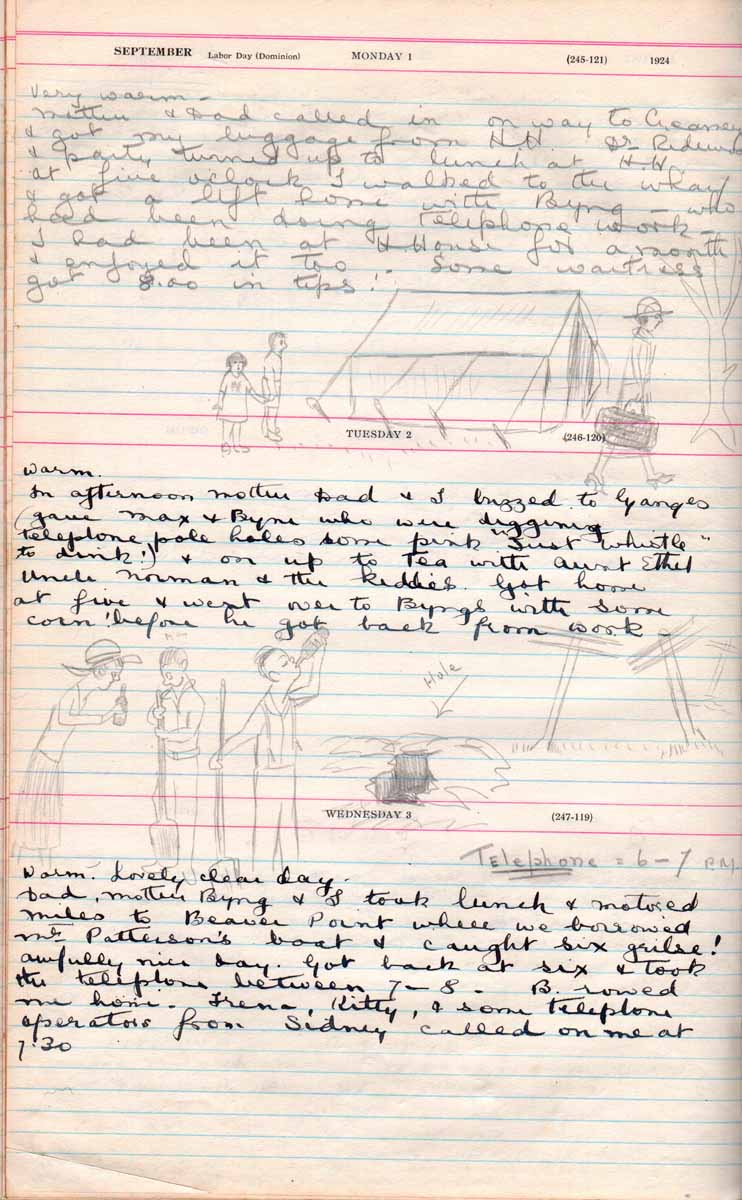 SEPTEMBER Labor Day (Dominion) MONDAY 1 (245-121) 1924
Very warm -
Mother & Dad called in on way to
& got my luggage from H.H. Dr
& party turned up to lunch at H.H.
at five oclock I walked to the wharf
& got a lift home with Byng - who
had been doing telephone work -
I had been at H. House for a month
& enjoyed it too - Some waitress
got 8.00 in tips!
TUESDAY 2 (246-120)
Warm.
In afternoon mother Dad & I buzzed to Ganges
(gave Max & Byng who were digging
telephone pole holes some pink "Just Whistle"
to drink!) & on up to Tea with Aunt Ethel
Uncle Norman & the kiddies. Got home
at five & went over to Byngs with some
corn! before he got back from work -
Hole
WEDNESDAY 3 (247-119)
Telephone = 6-7 P.M.
Warm. Lovely clear day.
Dad, mother Byng & I took lunch & motored
miles to Beaver Point where we borrowed
Mrs Patterson's boat & caught six grilse!
awfully nice day. Got back at six & took
the telephone between 7-8 - B. rowed
me home. Irena, Kitty, & some telephone
operators from Sidney called on me at
7.30